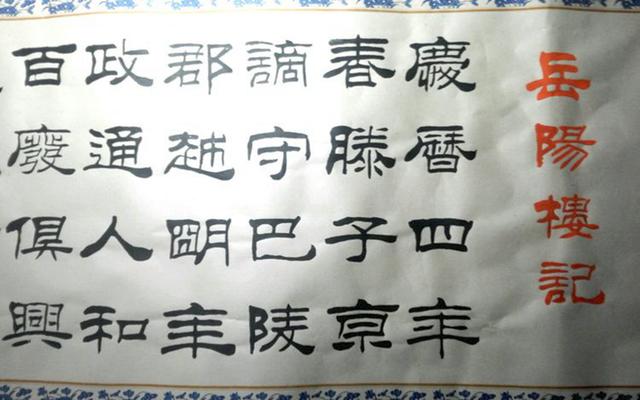 岳陽樓記
慶曆四年
春滕子京
謫守巴陵
郡越明年
政通人和
百廢俱興